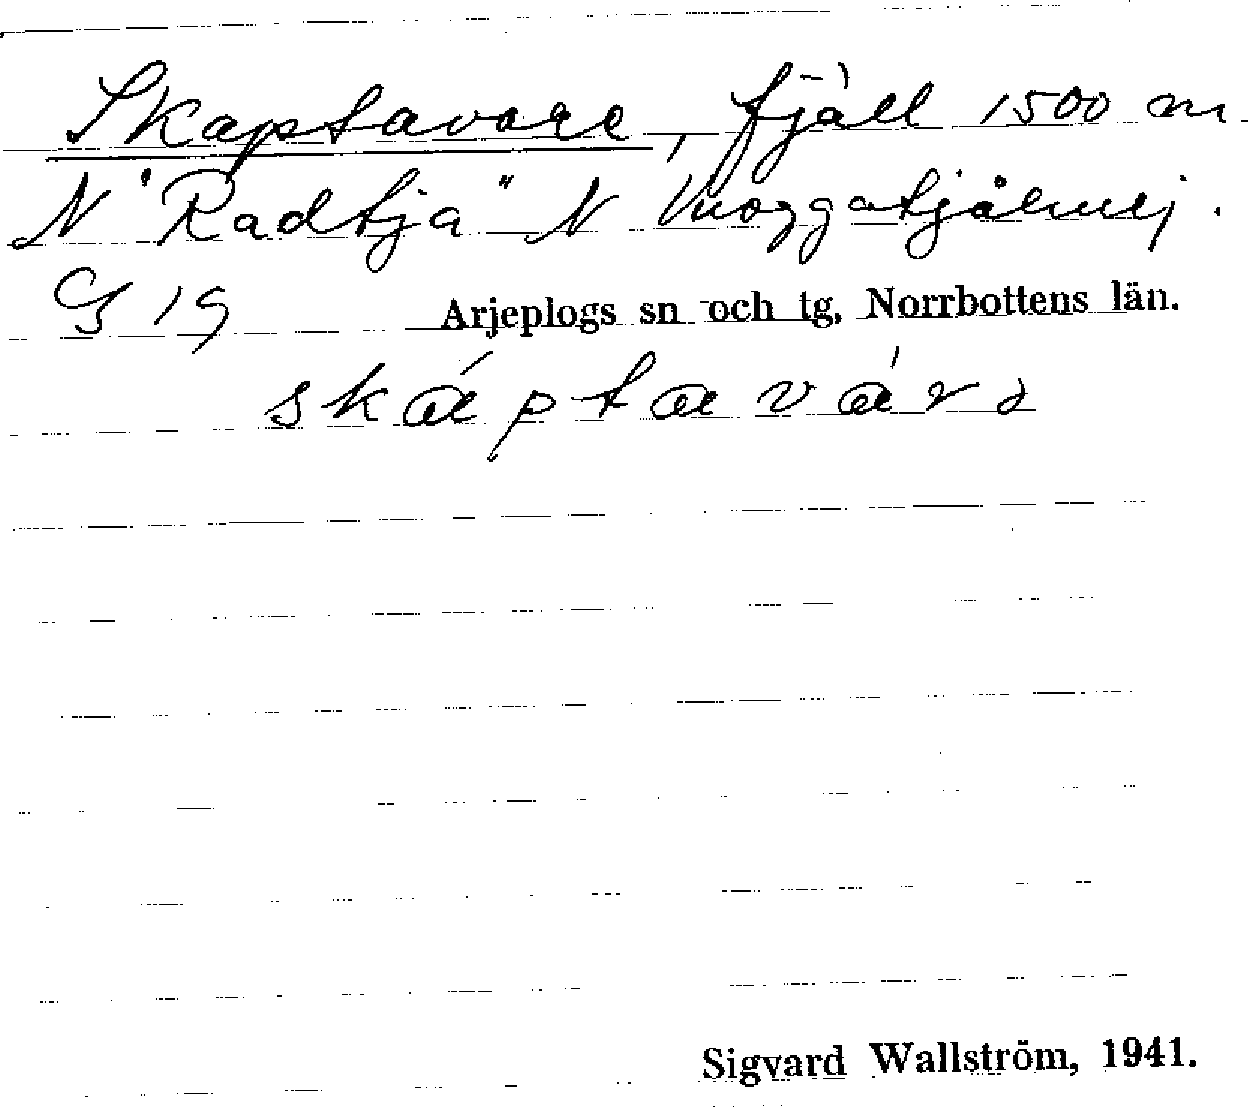 Skaptavare, fjäll 1500 m
N "Radtja" N Vuoggatjålmej.
G 19 Arjeplogs sn och tg, Norrbottens län.
skáptavárə
Sigvard Wallström, 1941.